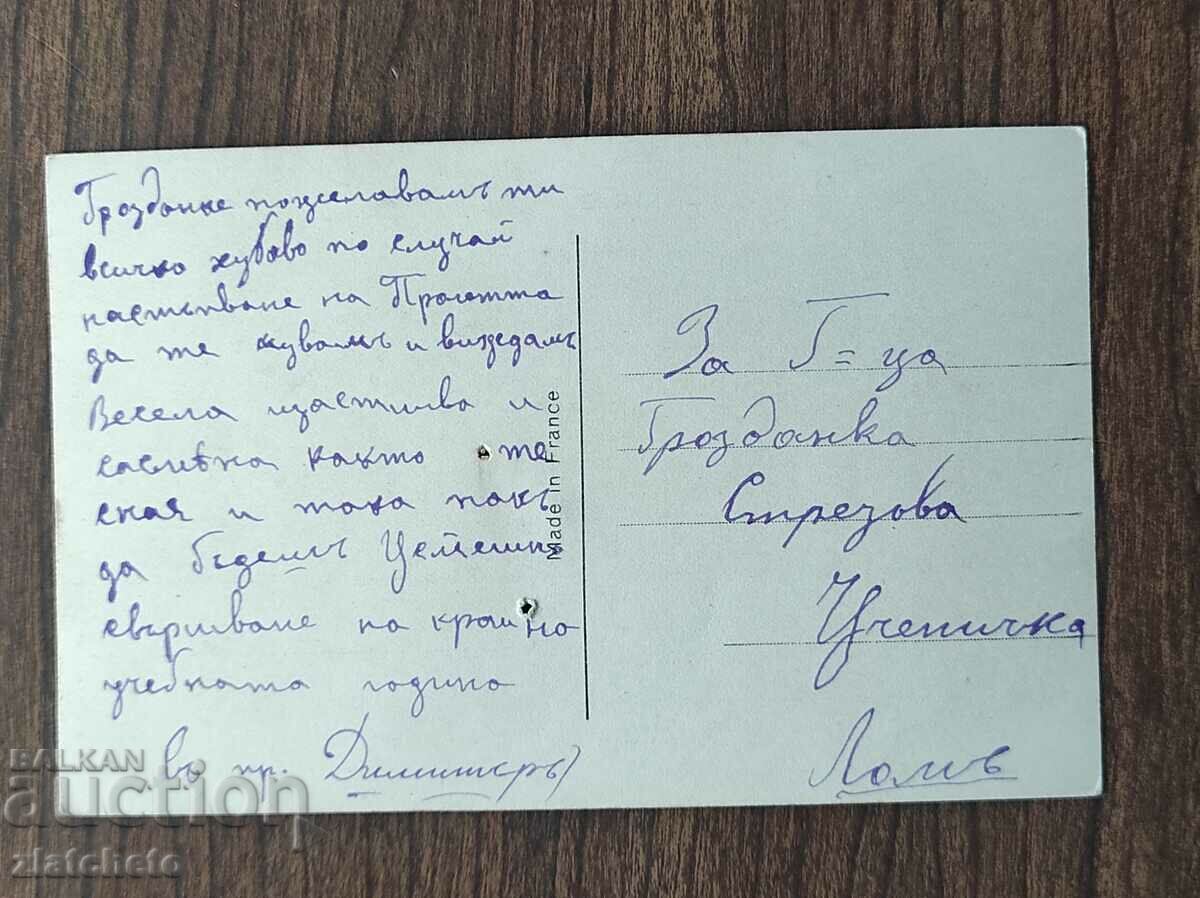 Грозданке пожелавамъ ти
всичко хубаво по случай
настъпване на Пролетта
да те чувамъ и виждамъ
Весела щастлива и
както те
зная и така пакъ
да бѫдешъ
свършване на крайно
учебната година
пр. Димитеръ
Made in France
За Г=ца
Грозданка
Стрезова
Ученичка
Ломъ
BALKAN
auction
zlatcheto